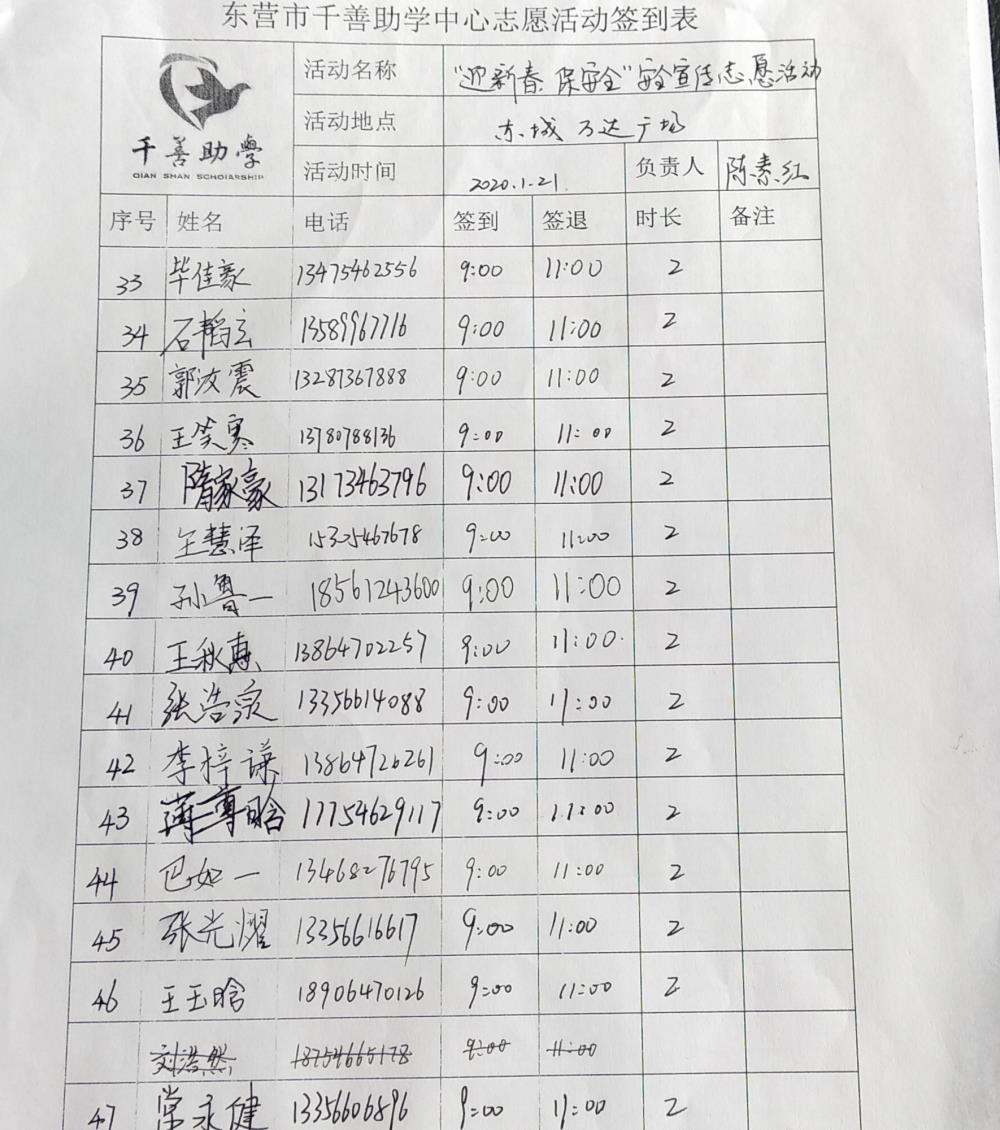 东营市千善助学中心志愿活动签到表
千善助学
QIAN SHAN SCHOIARSHIP
活动名称 “迎新春 保安全”安全宣传志愿活动
活动地点 东城万达广场
活动时间 2020.1.21. 负责人 陈素红
序号 姓名 电话 签到 签退 时长 备注
33 毕佳豪 13475462556 9:00 11:00 2
34 石韬玄 13589967716 9:00 11:00 2
35 郭汝震 13287367888 9:00 11:00 2
36 王笑寒 13780788136 9:00 11:00 2
37 隋家豪 13173463796 9:00 11:00 2
38 王慧泽 15325467678 9:00 11:00 2
39 孙鲁一 18561243600 9:00 11:00 2
40 王秋惠 13864702257 9:00 11:00. 2
41 张浩泉 13356614088 9:00 11:00 2
42 李梓谦 13864726261 9:00 11:00 2
43 晗 17754629117 9:00 11:00 2
44 巴如一 13468276795 9:00 11:00 2
45 张光耀 13356616617 9:00 11:00 2
46 王玉晗 18906470126 9:00 11:00 2
刘浩然 18754665178 9:00 11:00
47 常永健 13356606896 9:00 11:00 2